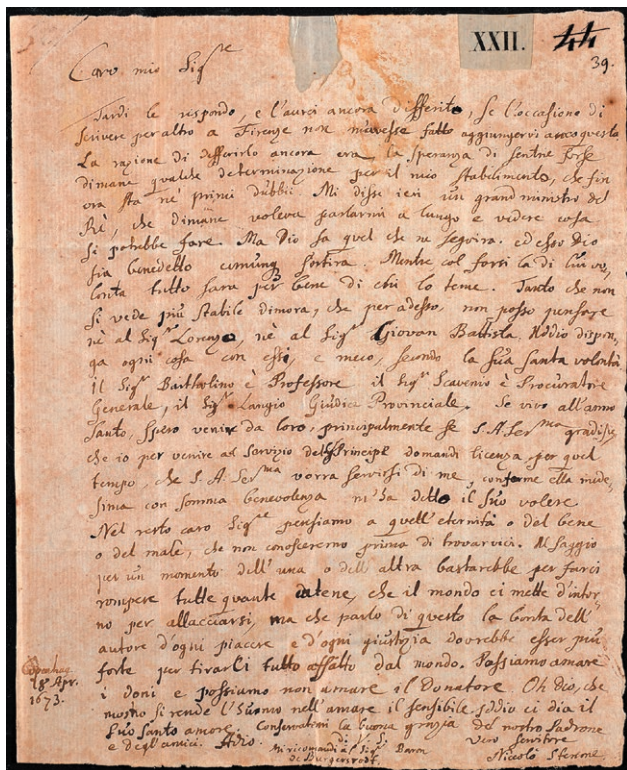 XXII.
44
39.
Caro mio Sig.re
Tardi le rispondo, e l'aurei ancora differito, se l'occasione di
scrivere per altro a Firenze non m'avesse fatto aggiungervi anco questa
La razione di differirlo ancora era la speranza di sentire forse
dimane qualche determinazione per il mio stabilimento, che fin
ora sta ne' primi dubbii. Mi disse ieri un grand ministro del
Rè, che dimane voleva parlarmi a lungo e vedere cosa
si potrebbe fare. Ma Dio sa quel che ne seguira. ed esso Dio
sia benedetto comunq sortira. Mentre col farsi la di lui vo,
lonta tutto sara per bene di chi lo teme. Tanto che non
si vede più stabile dimora, che per adesso, non posso pensare
nè al Sig.r Lorenzo, nè al Sig.r Giovan Battista. Iddio dispon,
ga ogni cosa con essi, e meco, secondo la sua santa volontà
Il Sig.r Bartholino è Professore il Sig.r Scavenio è Procuratore
Generale, il Sig.r Langio Giudice Provinciale. Se vivo all'anno
Santo, spero venire da loro, principalmente se S.A.Ser.ma gradisse
che io per venire al servizio del Principe domandi licenza per quel
tempo, che S.A.Ser.ma vorra servirsi di me, conforme ella mede,
sima con somma benevolenza m'ha detto il suo volere
Nel resto caro Sig.re pensiamo a quell'eternità o del bene
o del male, che non conosceremo prima di trovarvici. Il saggio
per un momento dell'una o dell'altra bastarebbe per farci
rompere tutte quante catene, che il mondo ci mette d'intor,
no per allacciarsi, ma che parlo di questo la bonta dell'
autore d'ogni piacere e d'ogni giustizia dovrebbe esser più
forte per tirarci tutto affatto dal mondo. Possiamo amare
i doni e possiamo non amare il Donatore. Oh Dio, che
mostro si rende l'huomo nell'amare il sensibile. Iddio ci dia il
suo santo amore. Conservatimi la buona grazia del nostro Padrone
e degl'amici. Adio. di V. S.
Vero servitore
Mi ricomandi al Sig.r Baron
de
Niccolò Stenone
Copenhag
18 Apr.
1673.